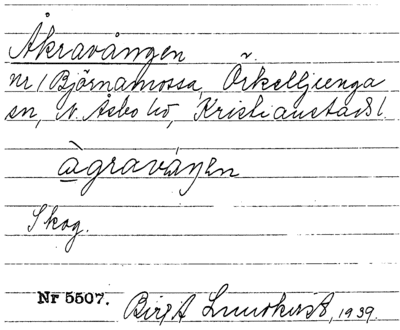 Åkravången
nr 1 Björnamossa, Örkelljunga
sn, N. Åsbo hd, Kristianstads l.
àgravången
Skog.
Nr 5507. Birgit Lundkvist, 1939.